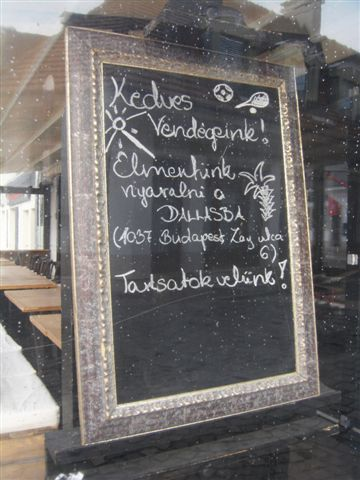 Kedves
Vendégeink!
Elmentünk
nyaralni a
DALLASBA
(1037 Budapest Zay utca
6)
Tartsatok velünk!